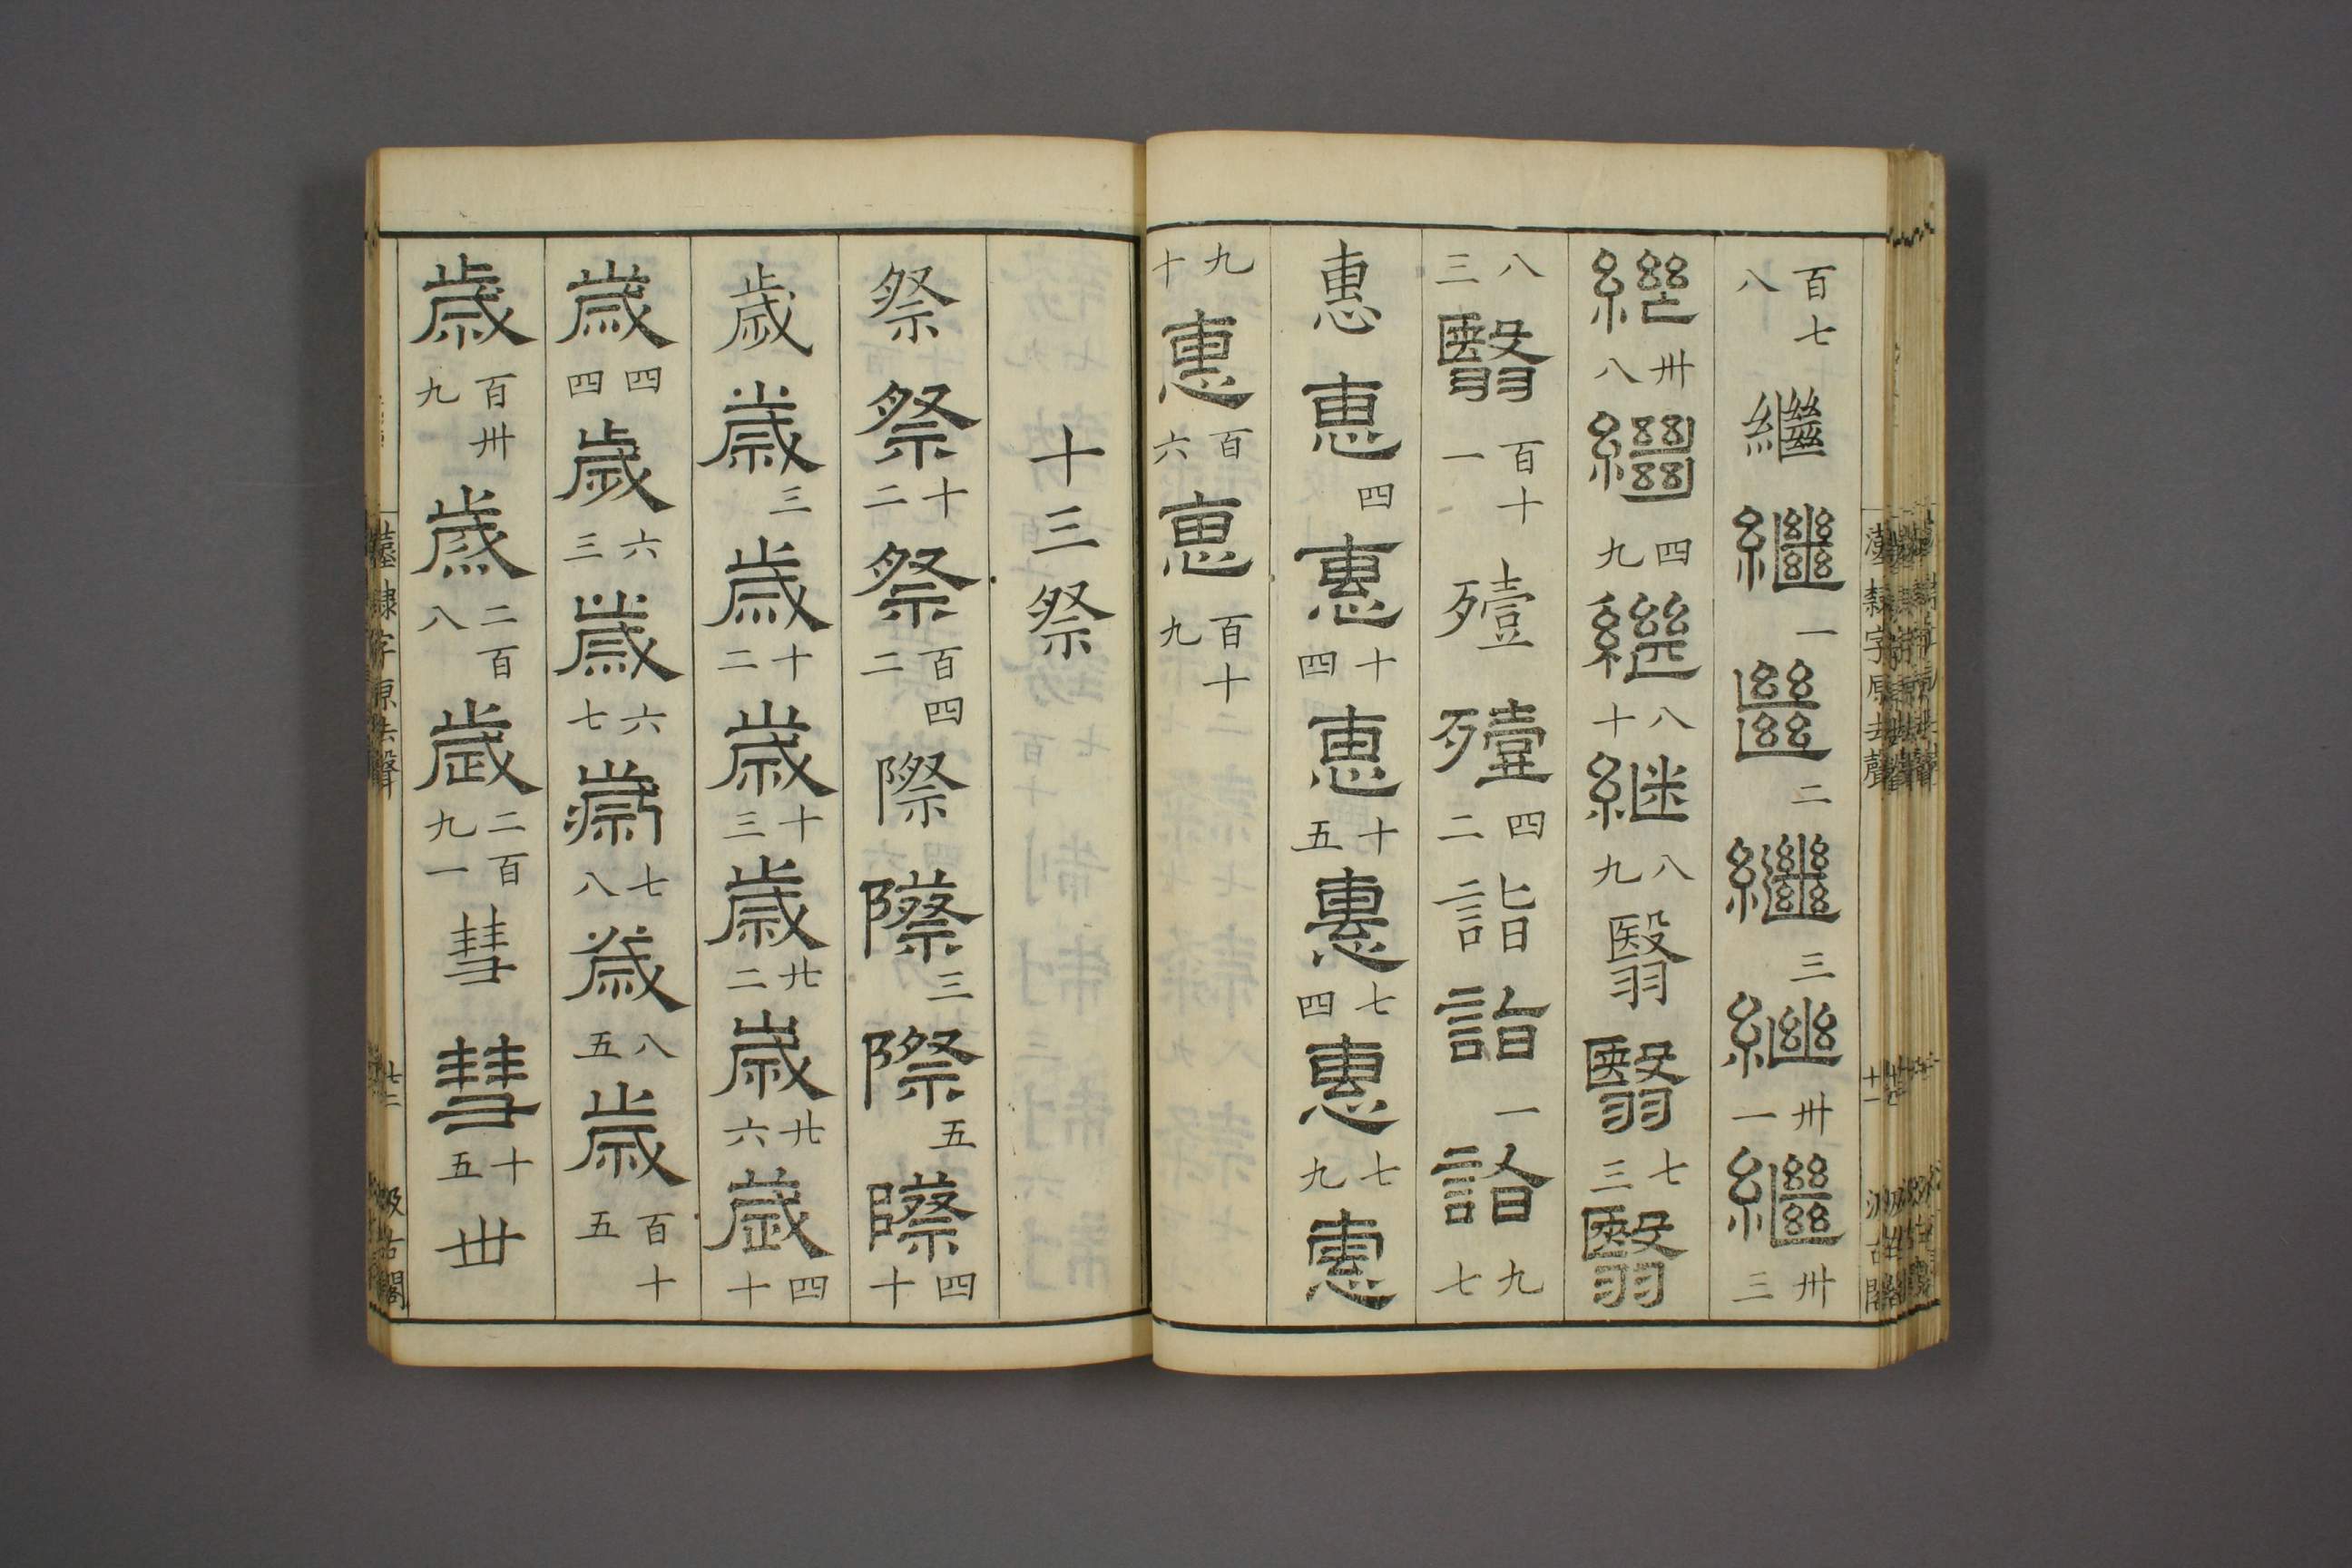 百七八繼繼一㡭二繼三繼卅一繼卅三
繼卅八繼四九繼八十継八九翳翳七三翳
八三翳百十一殪殪四二詣詣一詣九七
惠惠四惠十四惠十五惠七四惠七九惠
九十惠百六惠百十九
十三祭
祭祭十二祭百四二際際三際五際四十
歲歲三歲十二歲十三歲廿二歲廿六歲四十
歲四四歲六三歲六七歲七八歲八五歲百十五
歲百卅九歲二百八歲二百九一彗彗十五丗
漢隸字原去聲
十一
汲古閣
漢隸字原去聲
十二
汲古閣